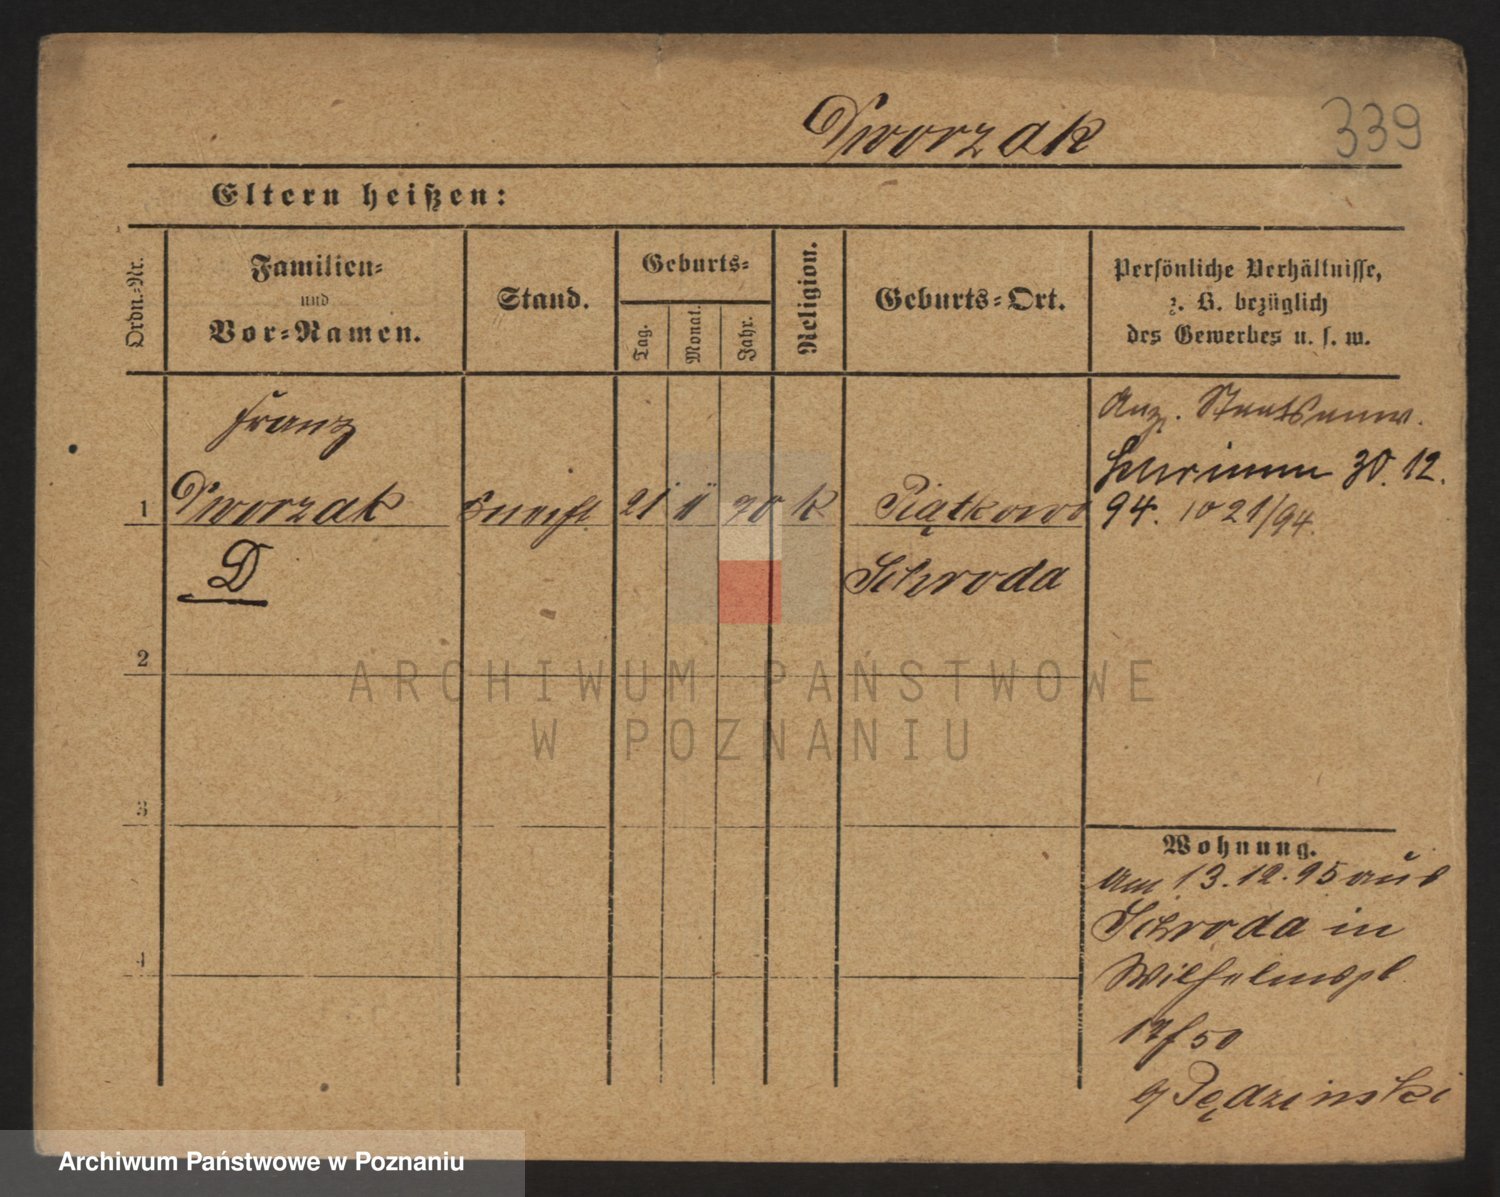 Dworzak
339
Eltern heißen:
Ordn.-Nr.
Familien-
und
Vor-Namen.
Stand.
Geburts-
Tag.
Monat.
Jahr.
Religion.
Geburts-Ort.
Persönliche Verhältnisse,
z. B. bezüglich
des Gewerbes u. s. w.
Franz
1 Dworzak Knecht 21 11 70 k Piątkowo
D
Schroda
Anz. Staatsanw.
Schrimm 30. 12.
94. 1021/94.
2
3
4
Wohnung.
Am 13.12.95 aus
Schroda in
Wilhelmspl
17/50
Pędzinski
ARCHIWUM PAŃSTWOWE
W POZNANIU
Archiwum Państwowe w Poznaniu